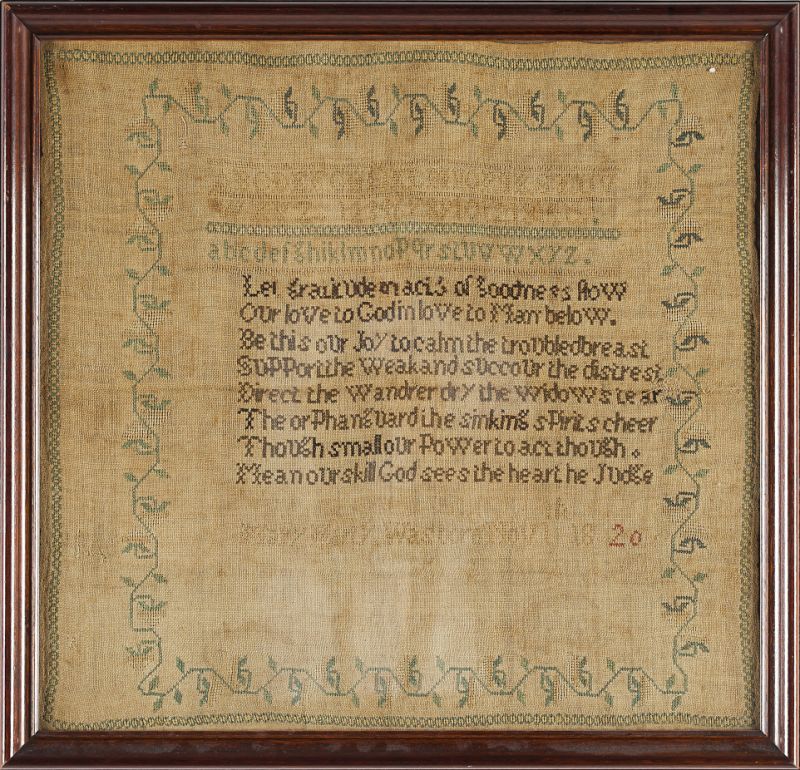 abcdefghiklmnopqrstuvwxyz.
Let gratitude in acts of goodness flow
Our love to God in love to Man below.
Be this our Joy to calm the troubled breast
Support the Weak and succour the distrest
Direct the Wandrer dry the Widows tear
The orphan guard the sinking spirits cheer
Though small our Power to act though.
Mean our skill God sees the heart he Judge
th
Mary 18 20